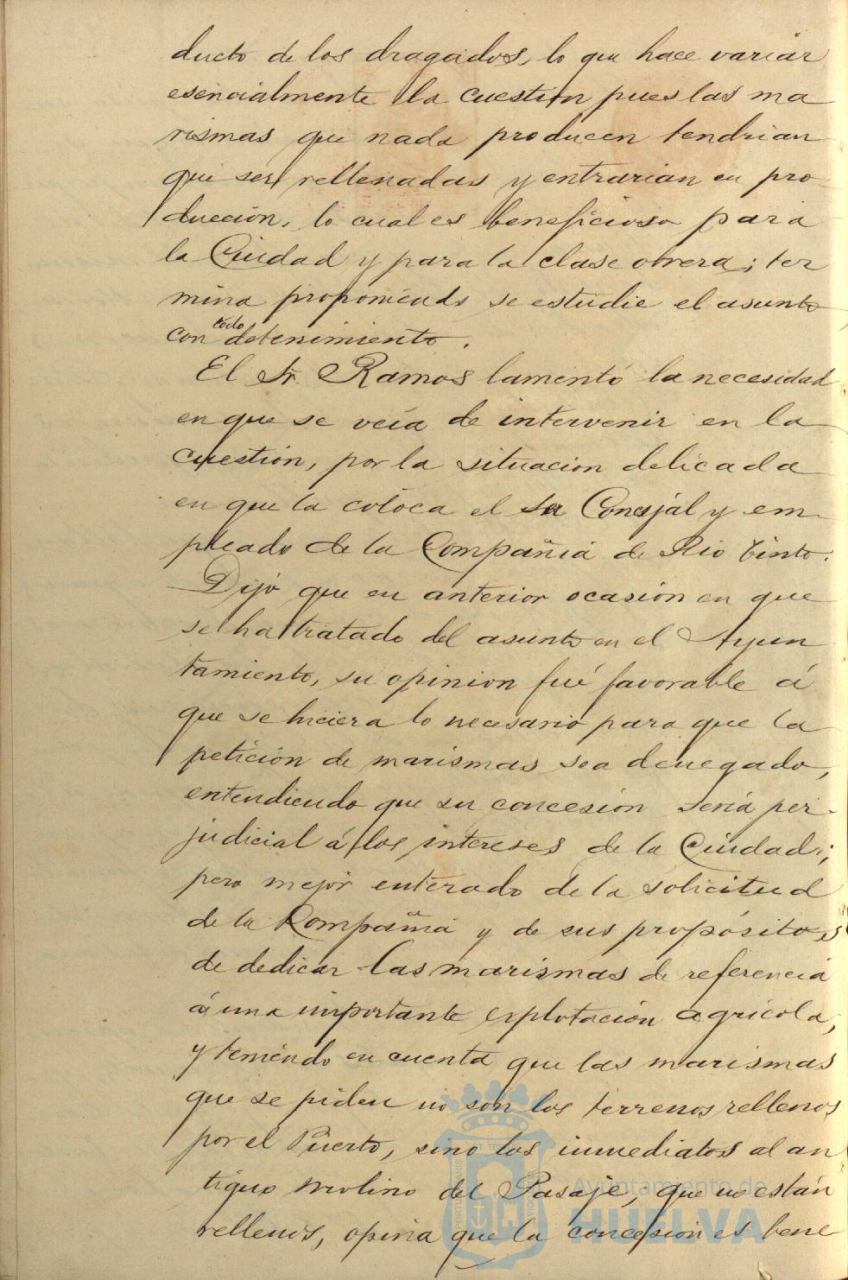 ducto de los dragados, lo que hace variar
esencialmente la cuestion pues las ma
rismas que nada producen tendrian
que ser rellenadas y entrarian en pro-
ducción, lo cual es beneficioso para
la Ciudad y para la clase obrera; ter
mina proponiendo se estudie el asunto
con todo detenimiento.
El Sr Ramos lamentó la necesidad
en que se veía de intervenir en la
cuestión, por la situacion delicada
en que la coloca el ser Concejal y em-
pleado de la Compañia de Rio Tinto.
Dijo que en anterior ocasión en que
se ha tratado del asunto en el Ayun
tamiento, su opinion fué favorable á
que se hiciera lo necesario para que la
petición de marismas sea denegado,
entendiendo que su concesión sería per-
judicial á los intereses de la Ciudad;
pero mejor enterado de la solicitud
de la Compañia y de sus propósitos
de dedicar las marismas de referencia
á una importante explotación agrícola,
y teniendo en cuenta que las marismas
que se piden no son los terrenos rellenos
por el Puerto, sino los inmediatos al an
tiguo molino del Pasaje, que no están
rellenos, opina que la concesion es bene
Ayuntamiento de
HUELVA